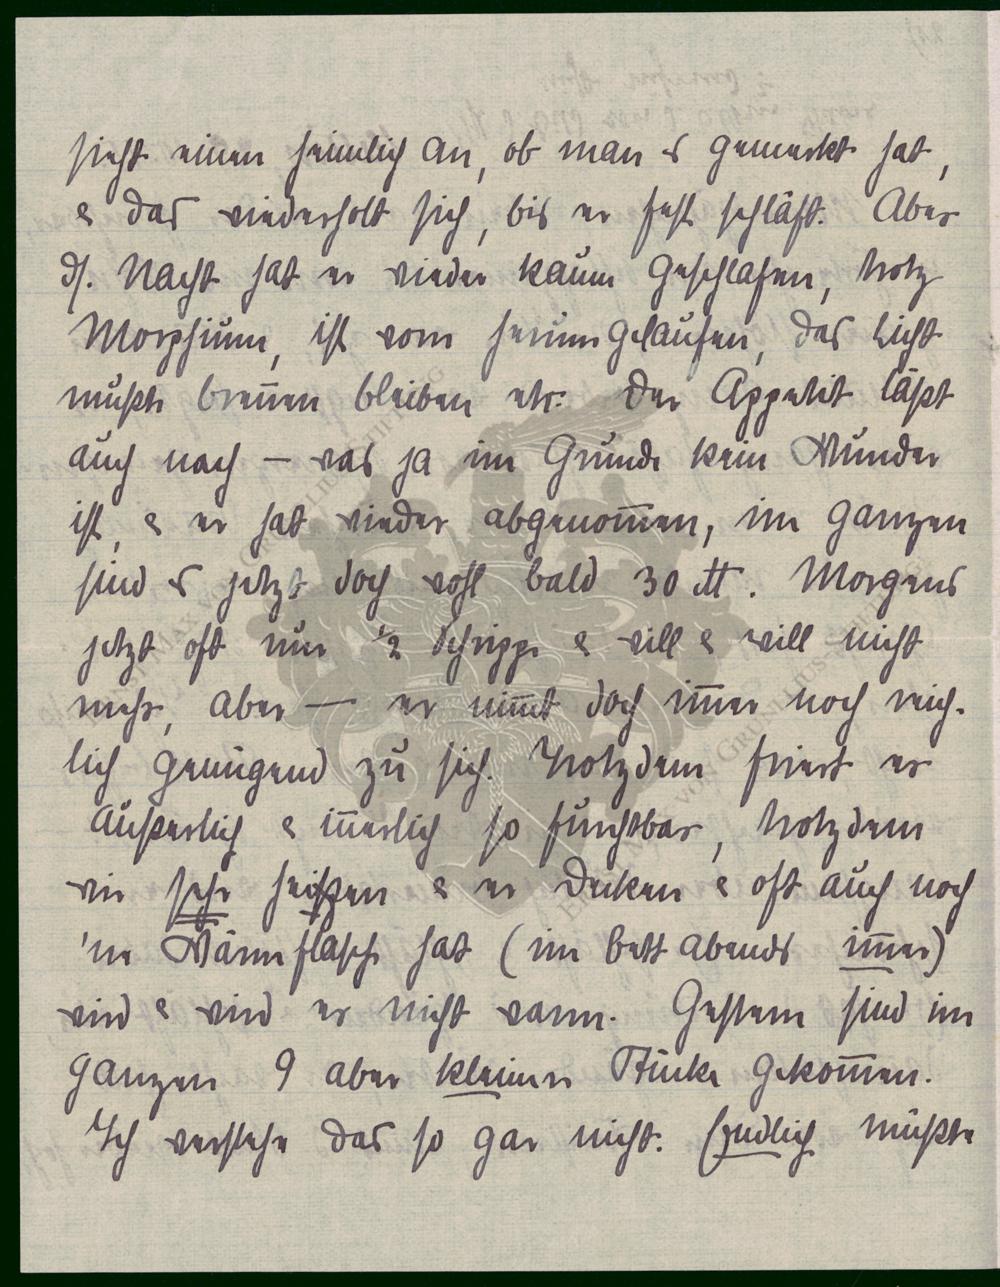 sieht einen heimlich an, ob man es gemerkt hat,
& das wiederholt sich, bis er fest schläft. Aber
ds. Nacht hat er wieder kaum geschlafen, trotz
Morphium, ist vorn herumgelaufen, das Licht
mußte brennen bleiben etc. Der Appetit läßt
auch nach – was ja im Grunde kein Wunder
ist, & er hat wieder abgenommen, im ganzen
sind es jetzt doch wohl bald 30 ℔. Morgens
jetzt oft nur ½ Schrippe & will & will nicht
mehr, aber — er nimmt doch immer noch reich-
lich genügend zu sich. Trotzdem friert er
äußerlich & innerlich so furchtbar, trotzdem
wir sehr heizen & er Decken & oft auch noch
'ne Wärmflasche hat (im Bett abends immer)
wird & wird er nicht warm. Gestern sind im
ganzen 9 aber kleinere Stücke gekommen.
Ich verstehe das so gar nicht. Endlich müßte